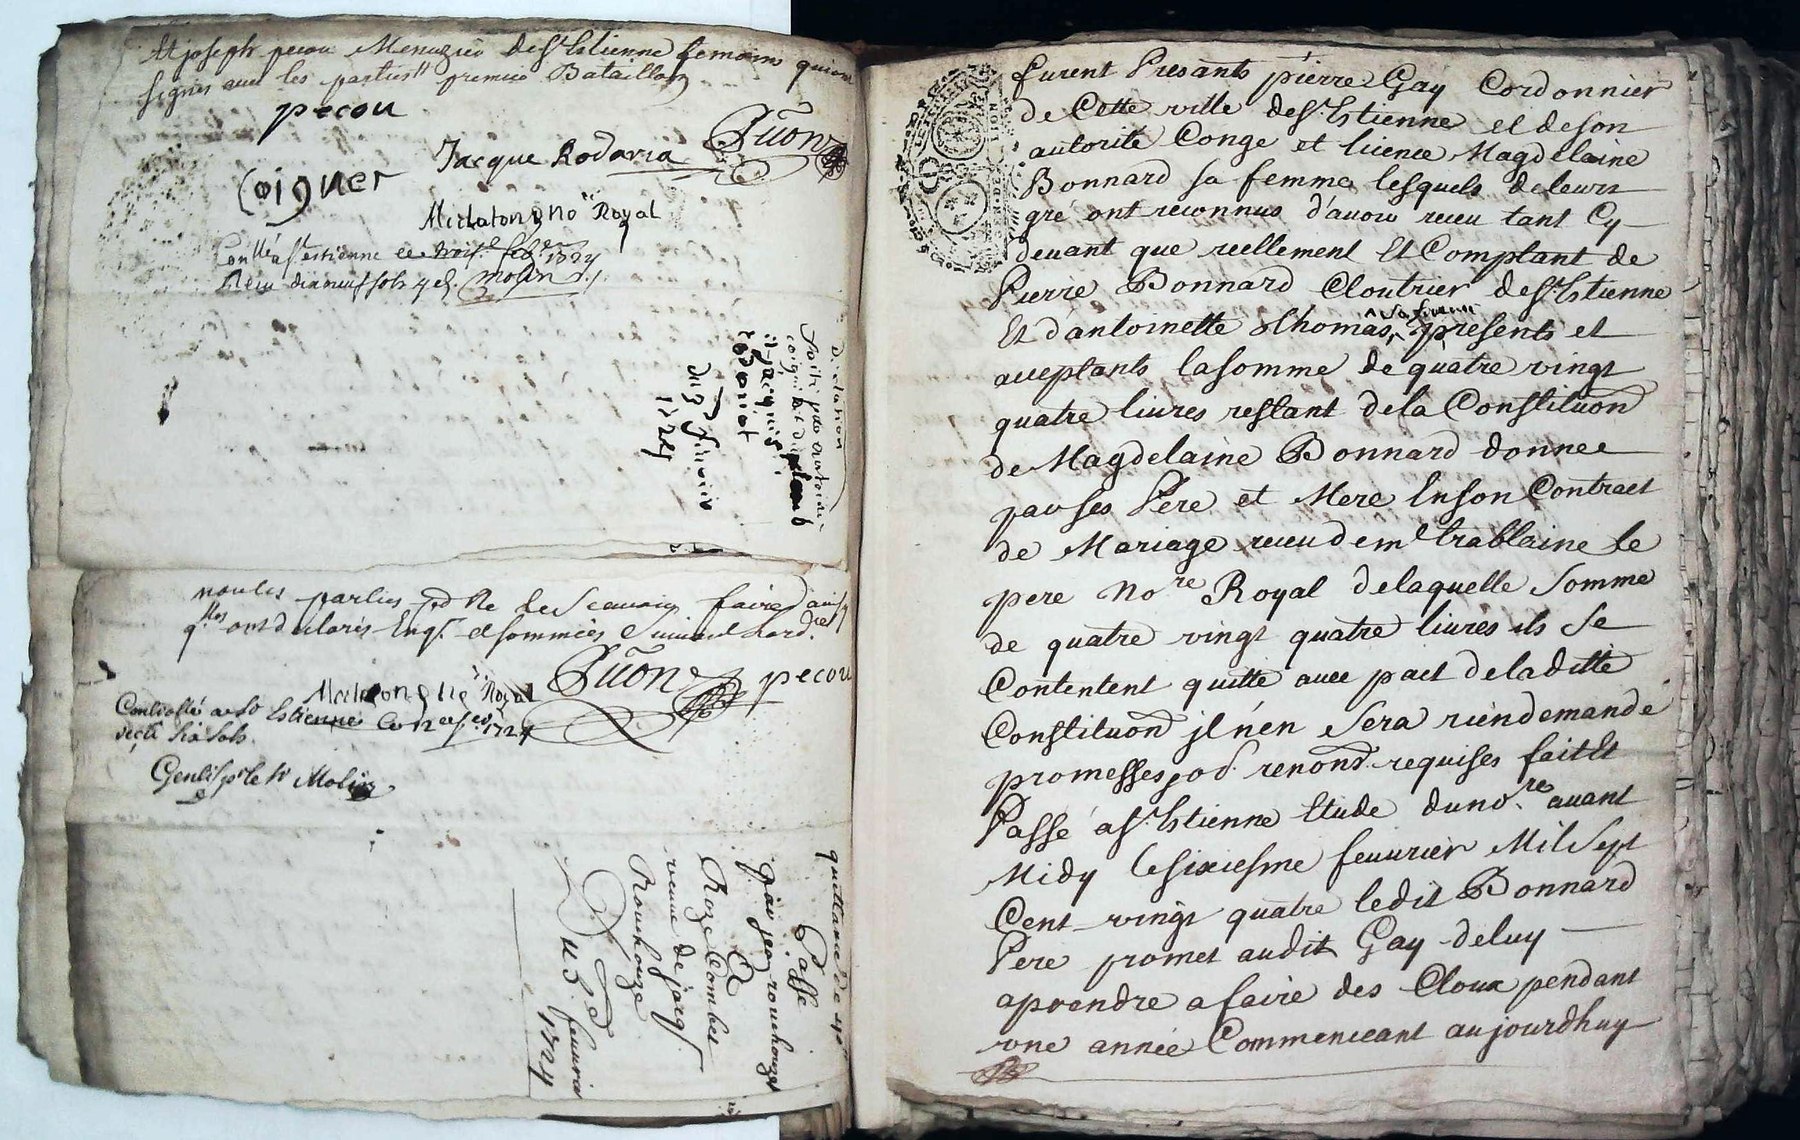 Et joseph pecou Menuzier de St Estienne temoins qui ont
signés avec les parties premier Bataillon
pecou
Jacque Rodaria
Coigner
No.re Royal
Con.lé a St estienne ce
Receu dixneuf sols
molin
Declaration
du 3 fevrier
1724
parties de ce Scavoir faire ainsy
q.lles ont declarés Enq. et sommées Suivant lord.
pecou
No.re Royal
Controllé a St Estienne Ce 1724
six sols
Molin
quittance de
Passé
par jean rouchouze
A
Roze Combe
veuve de jacq.
Rouchouze
Du 3 fevvrier
1724
furent Presants pierre Gay Cordonnier
de Cette ville de St Estienne et de son
autorité Conge et licence Magdelaine
Bonnard sa femme lesquels de leurs
gré ont reconnus d'avoir receu tant Cy
devant que reellement Et Comptant de
Pierre Bonnard Cloutrier de St Estienne
sa femme
Et d'antoinette thomas, presents et
aceptants la somme de quatre vingt
quatre livres restant de la Constituon
de Magdelaine Bonnard donnee
par ses Pere et Mere En son Contract
de Mariage receu de me trablaine le
pere No.re Royal de laquelle Somme
de quatre vingt quatre livres ils Se
Contentent quitte avec pact de la ditte
Constituon jl n'en Sera rien demandé
promesses od. renond. requises fait Et
Passé a St Estienne Etude du no.re avant
Midy le sixiesme fevvrier Mil Sept
Cent vingt quatre ledit Bonnard
Pere promet audit Gay de luy
aprendre a faire des Cloux pendant
une année Commenceant aujourdhuy